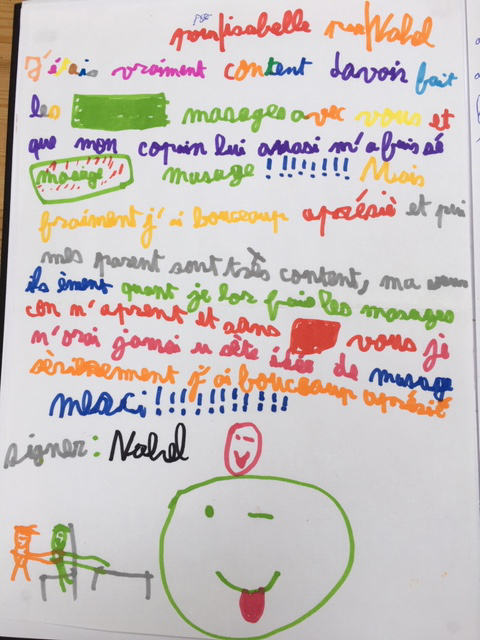 pour isabelle par Nahel
J'étais vraiment content davoir fait
les masages avec vous et
que mon copain lui aussi m'a fais sé
masage masage !!!!!!!! Mais
fraiment j'ai bouceaup aprésié et puis
mes parent sont très content, ma
ils ément quant je lor faie les masages
con n'aprent et sans vous je
n'orai jamai u sète idée de masage
sérieurement j'ai bouceaup aprésié
merci !!!!!!!!!!!
signer : Nahel